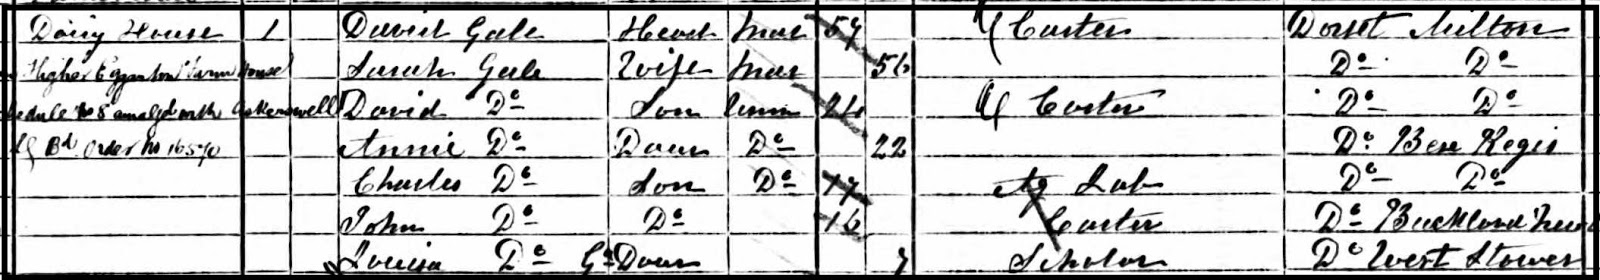 Dairy House 1 David Gale Head Mar 59 Carter Dorset Milton
Higher Eggardon Farm House Sarah Gale Wife Mar 56 Do Do
Schedule No 8 amalgd with Askerswell David Do Son Unm 24 Carter Do Do
LG Bd. Order No 16590 Annie Do Daur Do 22 Do Bere Regis
Charles Do Son Do 17 Ag Lab Do Do
John Do Do 16 Carter Do Buckland
Louisa Do Gd Daur 7 Scholar Do West Stower